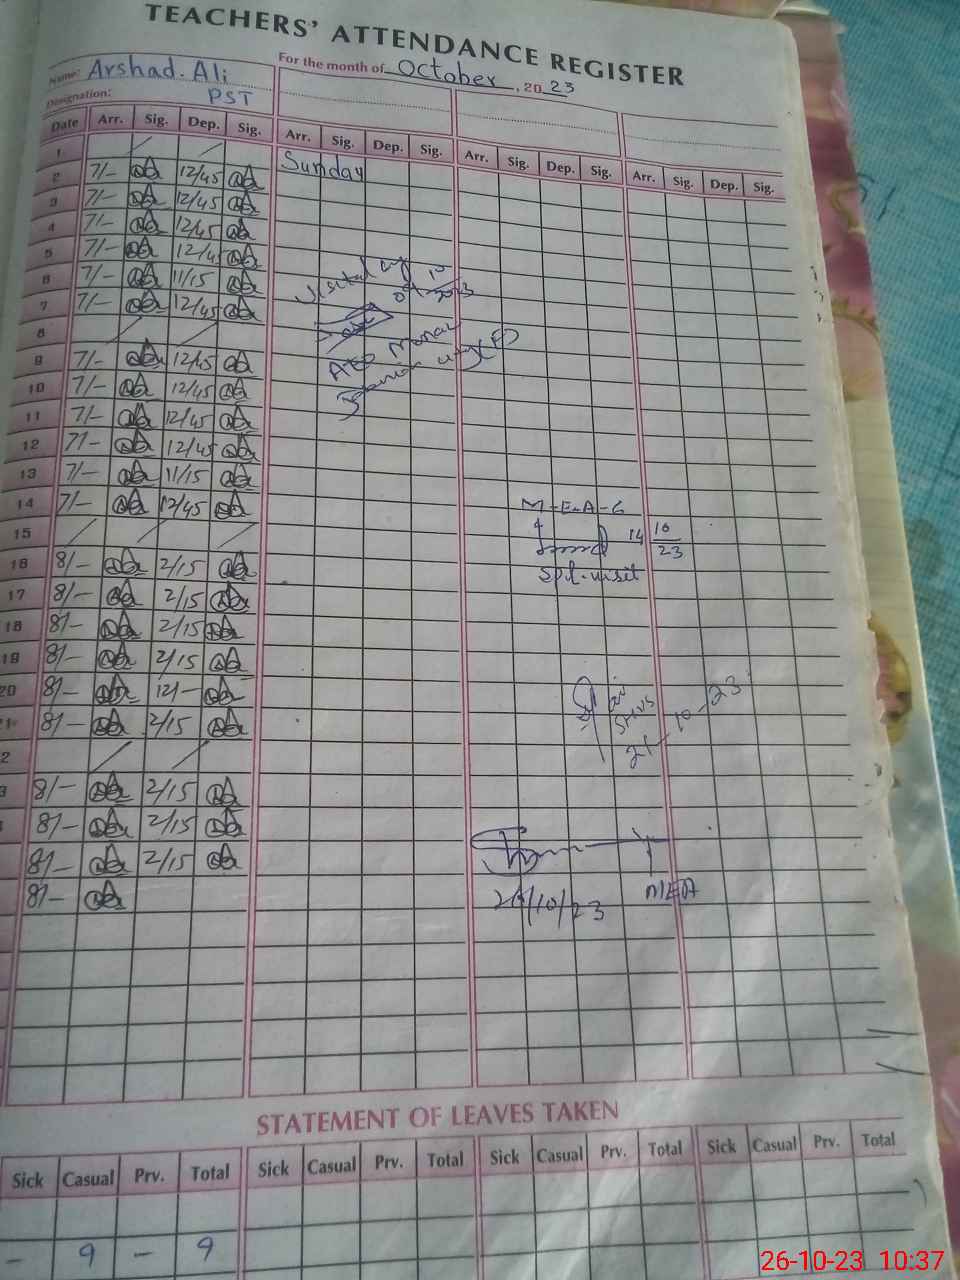 TEACHERS' ATTENDANCE REGISTER
Name: Arshad. Ali For the month of October, 2023
Designation: PST
Date Arr. Sig. Dep. Sig. Arr. Sig. Dep. Sig. Arr. Sig. Dep. Sig. Arr. Sig. Dep. Sig.
1 Sunday
2 7/- 12/45
3 7/- 12/45
4 7/- 12/45
5 7/- 12/45
6 7/- 11/15
7 7/- 12/45
8
9 7/- 12/45
10 7/- 12/45
11 7/- 12/45
12 7/- 12/45
13 7/- 11/15
14 7/- 12/45
15
16 8/- 2/15
17 8/- 2/15
18 8/- 2/15
19 8/- 2/15
20 8/- 12/-
21 8/- 2/15
2
3 8/- 2/15
8/- 2/15
8/- 2/15
8/-
Visited
10
2023
M-E-A-G
14 10
23
Spl. visit
21-10-23
26/10/23 MEA
STATEMENT OF LEAVES TAKEN
Sick Casual Prv. Total Sick Casual Prv. Total Sick Casual Prv. Total Sick Casual Prv. Total
- 9 - 9
26-10-23 10:37